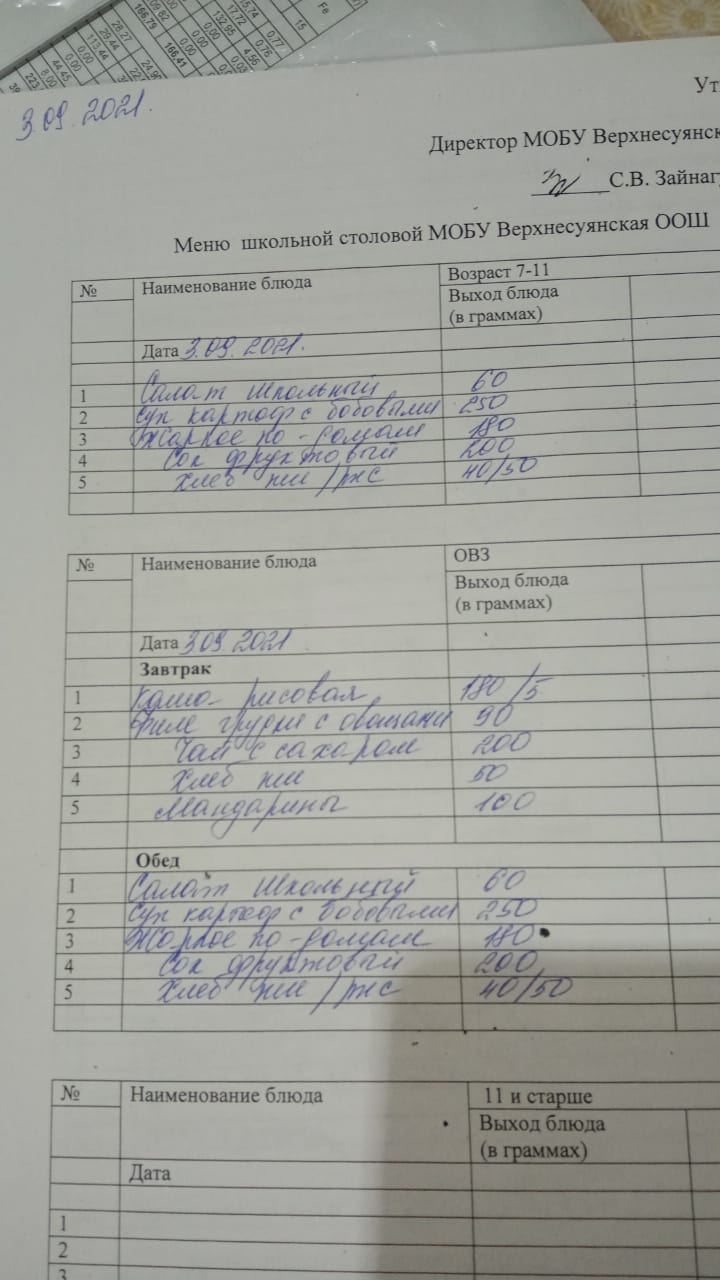 3.09.2021.
Ут
Директор МОБУ Верхнесуянск
С.В. Зайнагу
Меню школьной столовой МОБУ Верхнесуянская ООШ
№ Наименование блюда Возраст 7-11
Выход блюда
(в граммах)
Дата 3.09.2021.
1 Салат школьный 60
2 Суп картоф с бобовыми 250
3 Жаркое по-домаш 180
4 Сок фруктовый 200
5 Хлеб пш/рж 40/50
№ Наименование блюда ОВЗ
Выход блюда
(в граммах)
Дата 3.09.2021
Завтрак
1 Каша рисовая 180/5
2 Филе грудки с овощами 90
3 Чай с сахаром 200
4 Хлеб пш 50
5 Мандарины 100
Обед
1 Салат школьный 60
2 Суп картоф с бобовыми 250
3 Жаркое по-домаш 180
4 Сок фруктовый 200
5 Хлеб пш/рж 40/50
№ Наименование блюда 11 и старше
Выход блюда
(в граммах)
Дата
1
2
3